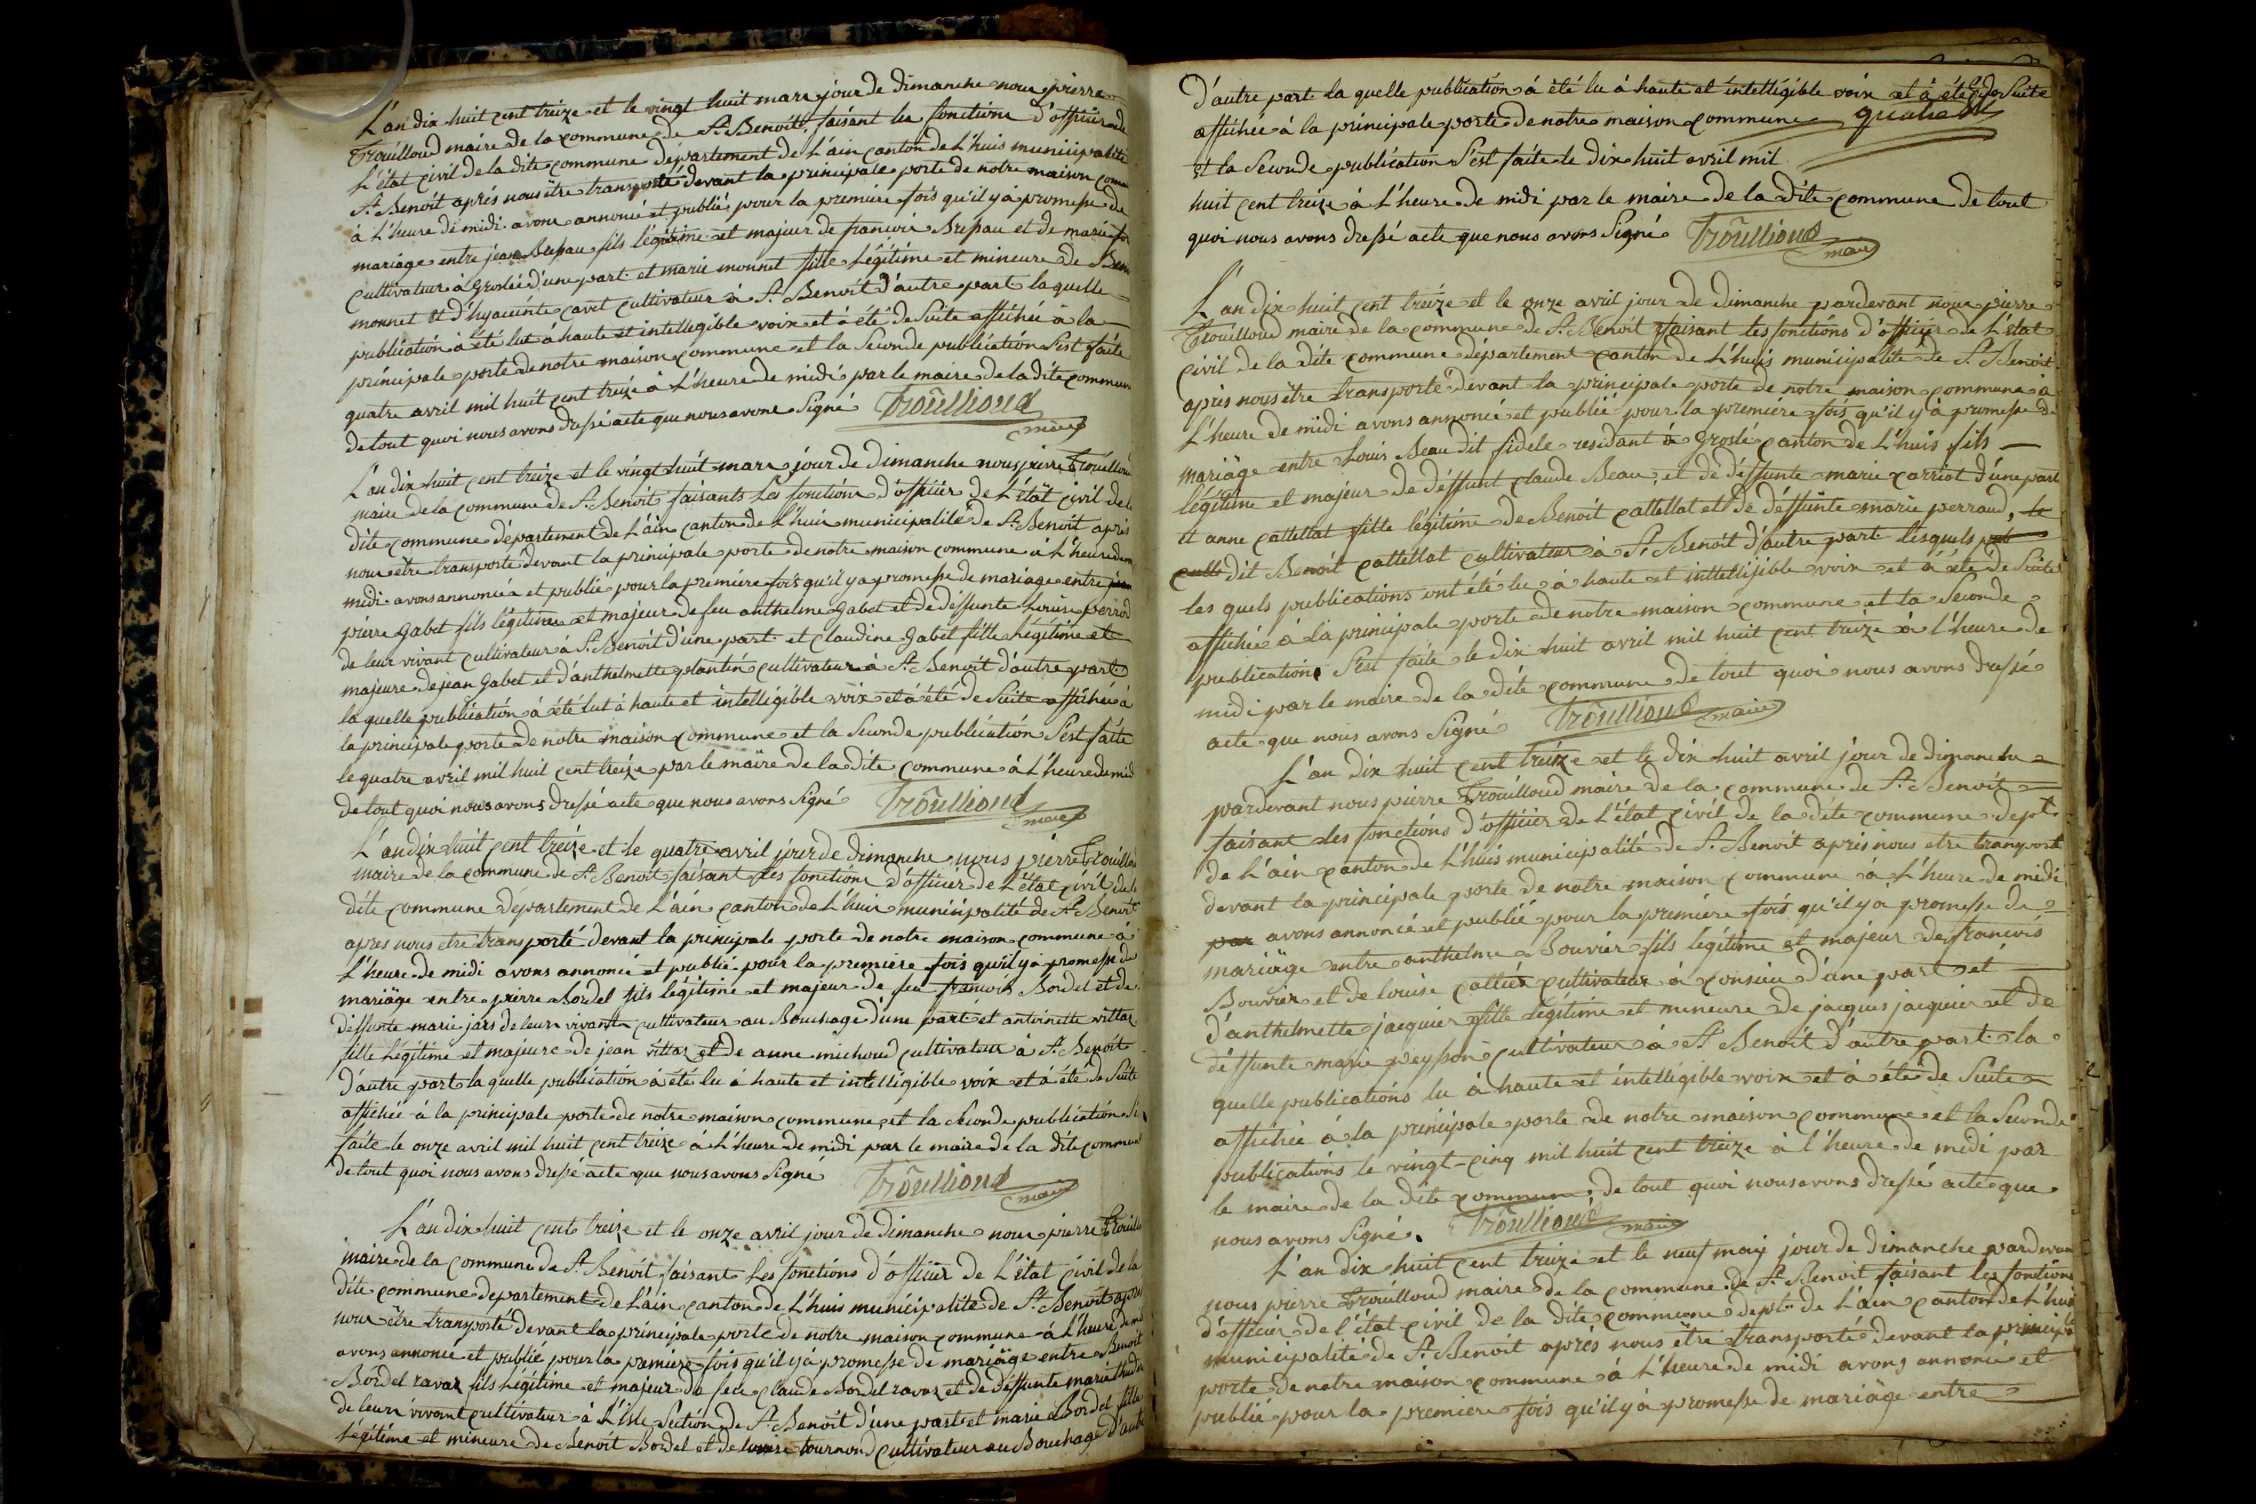 L'an dix huit cent treize et le vingt huit mars jour de dimanche nous pierre
Trouilloud maire de la commune de St Benoit, faisant les fonctions d'officier de
L'état civil de la dite commune département de L'ain canton de L'huis municipalité
St Benoit aprés nous être transporté devant la principale porte de notre maison
à L'heure de midi avons annoncé et publié pour la premiere fois qu'il y à promesse de
mariage entre jean Bressau fils légitime et majeur de francois Bressau et de marie
cultivateur à Groslée d'une part et marie monnet fille Légitime et mineure de
monnet et d'hyacinte cavit cultivateur à St Benoit d'autre part laquelle
publication à été lut à haute et intellegible voix et à été de Suite affichée à la
principale porte de notre maison commune et la Seconde publication S'est faite
quatre avril mil huit cent treize à L'heure de midi par le maire de la dite commune
de tout quoi nous avons dressé acte que nous avons Signé Trouilloud
maire
L'an dix huit cent treize et le vingt huit mars jour de dimanche nous pierre Trouilloud
maire de la commune de St Benoit faisants Les fonctions d'officier de L'état civil de la
dite commune département de L'ain canton de L'huis municipalité de St Benoit aprés
nous être transporté devant la principale porte de notre maison commune à L'heure de
midi avons annoncée et publié pour la premiere fois qu'il y a promesse de mariage entre
pierre Gabet fils légitime et majeur de feu anthelme Gabet et de déffunte Louise perrod
de leur vivant cultivateur à St Benoit d'une part et Claudine Gabet fille Légitime et
majeure de jean Gabet et d'anthelmette plantin cultivateur à St Benoit d'autre part
la quelle publication à été lut à haute et intelligible voix et à été de Suite affichée à
la principale porte de notre maison commune et la Seconde publication S'est faite
le quatre avril mil huit cent treize par le maire de la dite commune à L'heure de midi
de tout quoi nous avons dressé acte que nous avons Signé Trouilloud
maire
L'an dix huit cent treize et le quatre avril jour de dimanche nous pierre Trouilloud
maire de la commune de St Benoit faisant les fonctions d'officier de L'état civil de la
dite commune département de L'ain canton de L'huis municipalité de St Benoit
apres nous etre transporté devant la principale porte de notre maison commune à
L'heure de midi avons annoncé et publié pour la premiere fois qu'il y à promesse de
mariäge entre pierre Bordel fils légitime et majeur de feu francois Bordel et de
déffunte marie jars de leurs vivant cultivateur au Bouchage d'une part et antoinette vittoz
fille Légitime et majeure de jean vittoz et de anne michoud cultivateur à St Benoit
d'autre part la quelle publication à été lu à haute et intelligible voix et à été de Suite
affichée à la principale porte de notre maison commune et la Seconde publication
faite le onze avril mil huit cent treize à L'heure de midi par le maire de la dite commune
de tout quoi nous avons dressé acte que nous avons Signé Trouilloud
maire
L'an dix huit cent treize et le onze avril jour de dimanche nous pierre
maire de la commune de St Benoit faisant Les fonctions d'officier de L'état civil de la
dite commune departement de L'ain canton de L'huis municipalité de St Benoit
nous être transporté devant la principale porte de notre maison commune à L'heure de
avons annoncé et publié pour la premiere fois qu'il y à promesse de mariäge entre Benoit
Bordel ravaz fils Légitime et majeur de feu claude Bordel ravaz et de déffunte marie
de leurs vivant cultivateur à L'isle Section de St Benoit d'une part et marie Bordel fille
Légitime et mineure de Benoit Bordel et de Louise tournond cultivateur au Bouchage
d'autre part la quelle publication à été lu à haute et intelligible voix et à été de Suite
affichée à la principale porte de notre maison commune
et la Seconde publication S'est faite le dix huit avril mil
huit cent treize à L'heure de midi par le maire de la dite commune de tout
quoi nous avons dressé acte que nous avons Signé Trouilloud
maire
L'an dix huit cent treize et le onze avril jour de dimanche pardevant nous pierre
Trouilloud maire de la commune de St Benoit faisant les fonctions d'officier de L'état
civil de la dite commune département canton de L'huis municipalité de St Benoit
aprés nous être transporté devant la principale porte de notre maison commune à
L'heure de midi avons annoncé et publié pour la premiere fois qu'il y à promesse de
mariäge entre Louis Beau dit fidele residant à Groslé canton de L'huis fils
légitime et majeur de déffunt claude Beau, et de déffunte marie carriot d'une part
et anne cattellat fille légitime de Benoit cattellat et de déffunte marie perraud, le
dit Benoit cattellat cultivateur à St Benoit d'autre part lesquels
les quels publications ont été lu à haute et inttellijible voix et à été de Suite
affichée à la principale porte de notre maison commune et la Seconde
publication S'est faite le dix huit avril mil huit cent treize à l'heure de
midi par le maire de la dite commune de tout quoi nous avons dressé
acte que nous avons Signé Trouilloud maire
L'an dix huit cent treize et le dix huit avril jour de dimanche
pardevant nous pierre Trouilloud maire de la commune de St Benoit
faisant des fonctions d'officier de L'état civil de la dite commune dept
de L'ain canton de L'huis municipalité de St Benoit aprés nous etre transporté
devant la principale porte de notre maison commune à L'heure de midi
par avons annoncé et publié pour la premiere fois qu'il y à promesse de
mariäge entre anthelme Bouvier fils légitime et majeur de francois
Bouvier et de louise callier cultivateur à consieu d'une part et
d'anthelmette jacquier fille légitime et mineure de jacques jacquier et de
déffunte marie peysson cultivateur à St Benoit d'autre part la
quelle publications lu à haute et intelligible voix et à été de Suite
affichée à la principale porte de notre maison commune et la Seconde
publications le vingt-cinq mil huit cent treize à l'heure de midi par
le maire de la dite commune de tout quoi nous avons dressé acte que
nous avons Signé. Trouilloud maire
L'an dix huit cent treize et le neuf may jour de dimanche pardevant
nous pierre Trouilloud maire de la commune de St Benoit faisant les fonctions
d'officier de l'état civil de la dite commune dept de L'ain canton de L'huis
municipalite de St Benoit aprés nous être transporté devant la principale
porte de notre maison commune à L'heure de midi avons annoncé et
publié pour la premiere fois qu'il y à promesse de mariäge entre